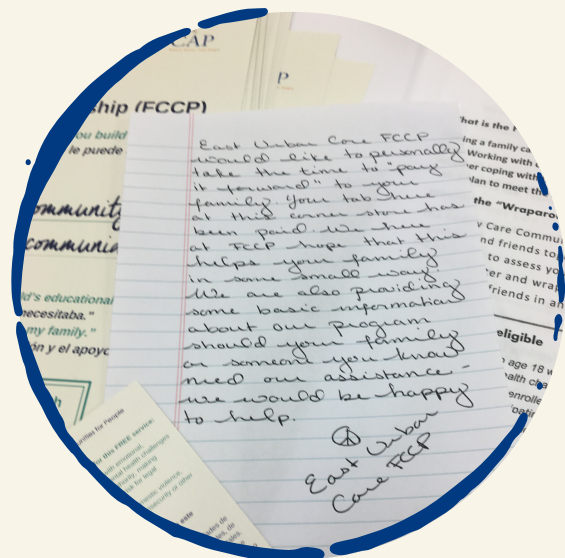 CAP
ship (FCCP)
P
you build
le puede
ommunity
communid
d's educational
ecesitaba."
my family."
ón y el apoyo
East Urban Core FCCP
would like to personally
take the time to "pay
it forward" to your
family. Your tab here
at this corner store has
been paid. We here
at FCCP hope that this
helps your family
in some small way.
We are also providing
some basic information
about our program
should your family
or someone you know
need our assistance -
we would be happy
to help.
East Urban
Core FCCP
hat is the
ing a family ca
Working with
er coping with
lan to meet th
the "Wraparou
y Care Commu
nd friends to
to assess yo
er and wrap
friends in an
eligible
age 18 w
ealth cha
enrolle
unities for People
or this FREE service:
with emotional,
ntal health challenges
risk for legal
mestic violence,
security or other
este